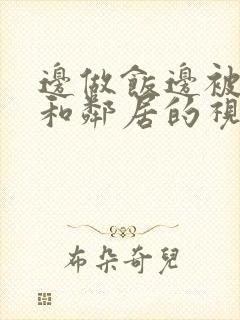 邊做飯邊被
和鄰居的視
布朵奇兒